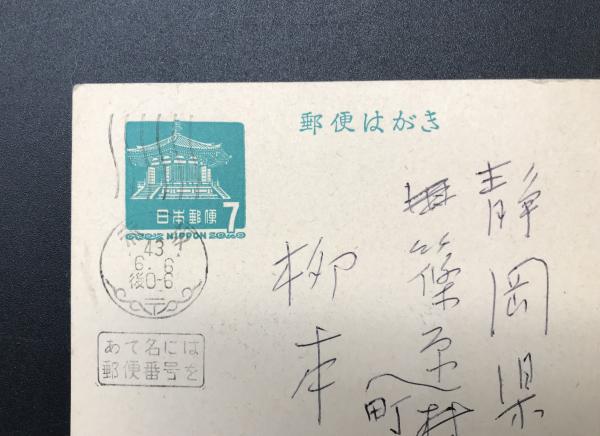 郵便はがき
日本郵便 7
NIPPON
43
6.6
後0-6
〒
あて名には
郵便番号を
静岡県
篠原村
町
柳本